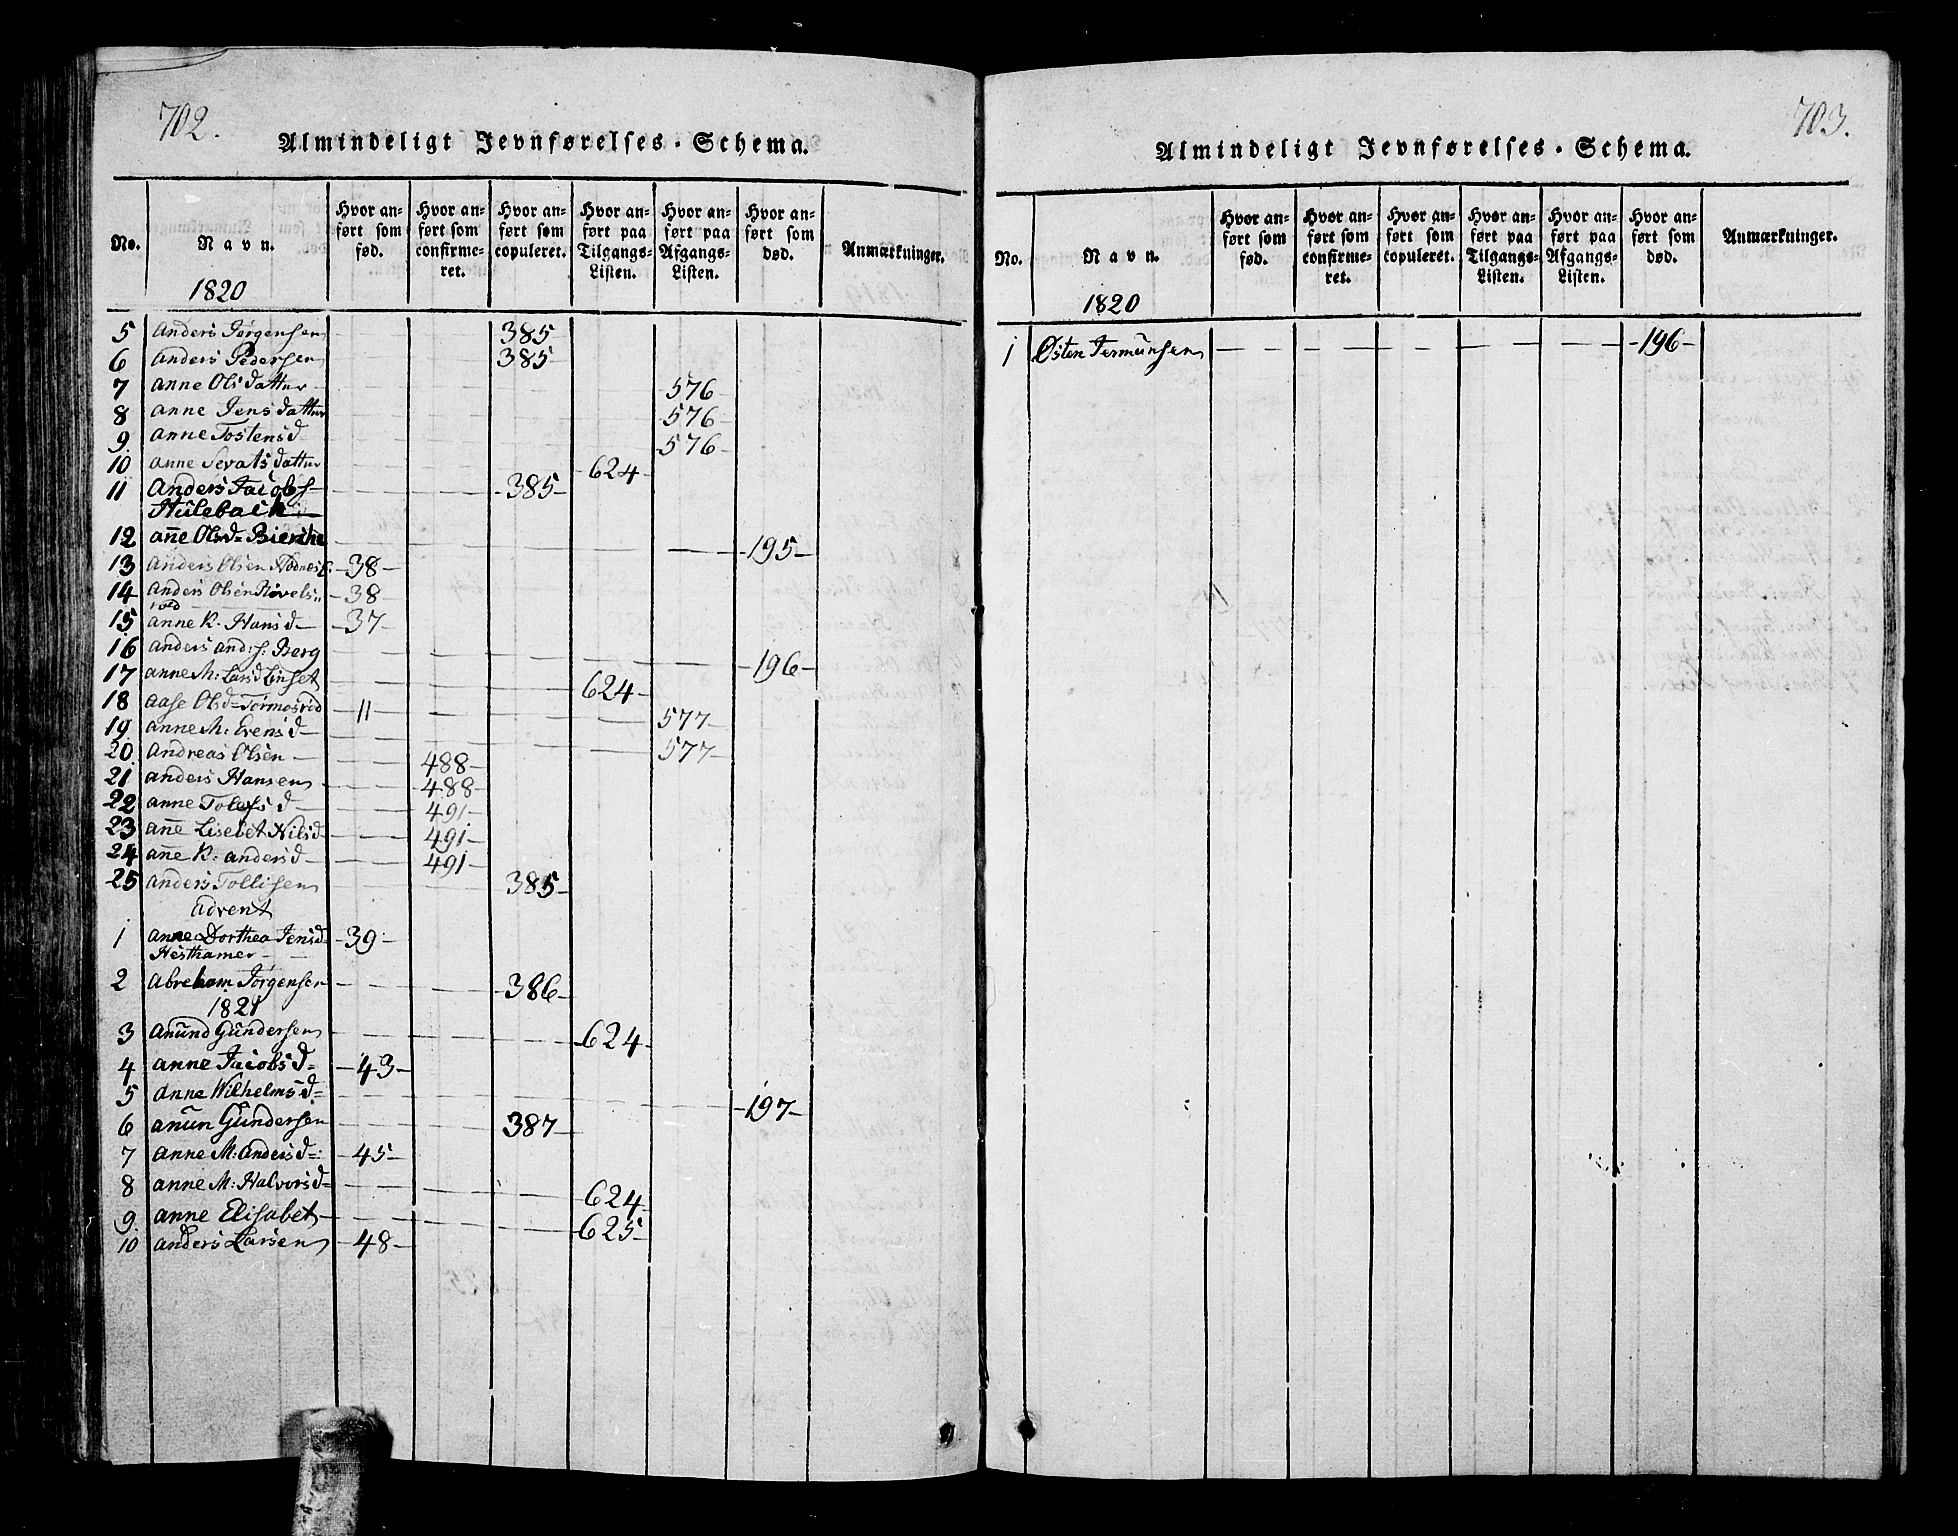 702.
Almindeligt Jevnførelses-Schema.
No. Navn. Hvor anført som fød. Hvor anført som confirmeret. Hvor anført som copuleret. Hvor anført paa Tilgangs-Listen. Hvor anført paa Afgangs-Listen. Hvor anført som død. Anmærkninger.
1820
5 Anders Jørgensen 385
6 Anders Pedersen 385
7 anne Olsdatter 576
8 anne Jensdatter 576
9 anne Tostensd 576
10 anne datter 624
11 Anders Jacobs 385
Hülebach
12 añe Olsd= Bierke 195
13 Anders Olsen 38
14 Anders Olsen 38
15 anne K. Hansd 37
16 anders and:s: Berg 196
17 anne M: Larsd Linset 624
18 aase Olsd= 11
19 anne M: Evensd 577
20 Andreas Olsen 577
21 anders Hansen 488
22 anne Tolefsd 488
23 añe Lisebet Nilsd 491
24 añe K: andersd 491
25 anders Tollisen 491
385
advent
1 anne Dorthea Jensd= 39
Hesthamer
2 abreham Jørgensen 386
1821
3 anünd Gündersen 624
4 anne Jacobsd= 43
5 Anne Wilhelmsd= 197
6 anün Gündersen 387
7 anne M: andersd=: 45
8 anne M: Halvorsd= 624
9 anne Elisabet 625
10 anders Larsen 48
703.
Almindeligt Jevnførelses-Schema.
No. Navn. Hvor anført som fød. Hvor anført som confirmeret. Hvor anført som copuleret. Hvor anført paa Tilgangs-Listen. Hvor anført paa Afgangs-Listen. Hvor anført som død. Anmærkninger.
1820
1 Østen Jermünsen 196